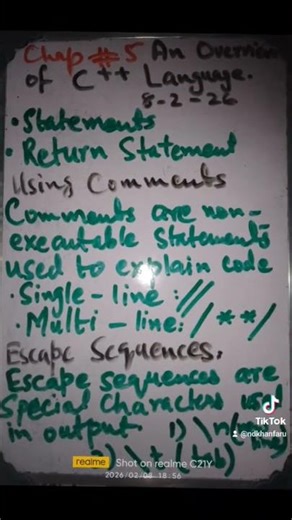 Chap # 5 An Overview
of C++ Language.
8-2-26
• Statements
• Return Statement
Using Comments
Comments are non-
executable statements
used to explain code
• Single-line : //
• Multi-line: /**/
Escape Sequences.
Escape sequences are
Special Characters used
in output 1) \n
2) \t (tab)
TikTok
@ndkhanfaru
realme Shot on realme C21Y
2026/02/08 18:56